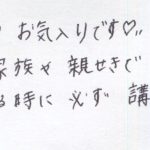 お気入りです♡
家族や親せきで
る時に必ず 講